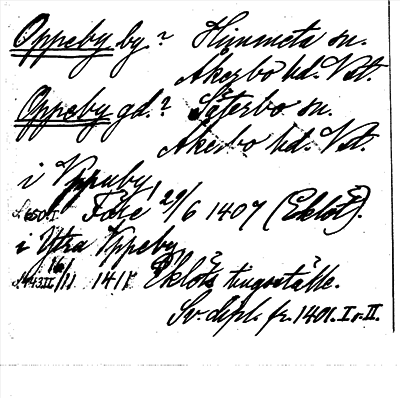 Oppeby by? Himmeta sn.
Åkerbo hd. Vstl.
Oppeby gd.? Säterbo sn.
Åkerbo hd. Vstl.
i Vppuby,
S. 650 I. Före 29/6 1407 (Eklöt).
i Ytra Vppeby
16/11 1411 Eklöts tingsställe.
Sv. dipl. fr. 1401. I o. II.